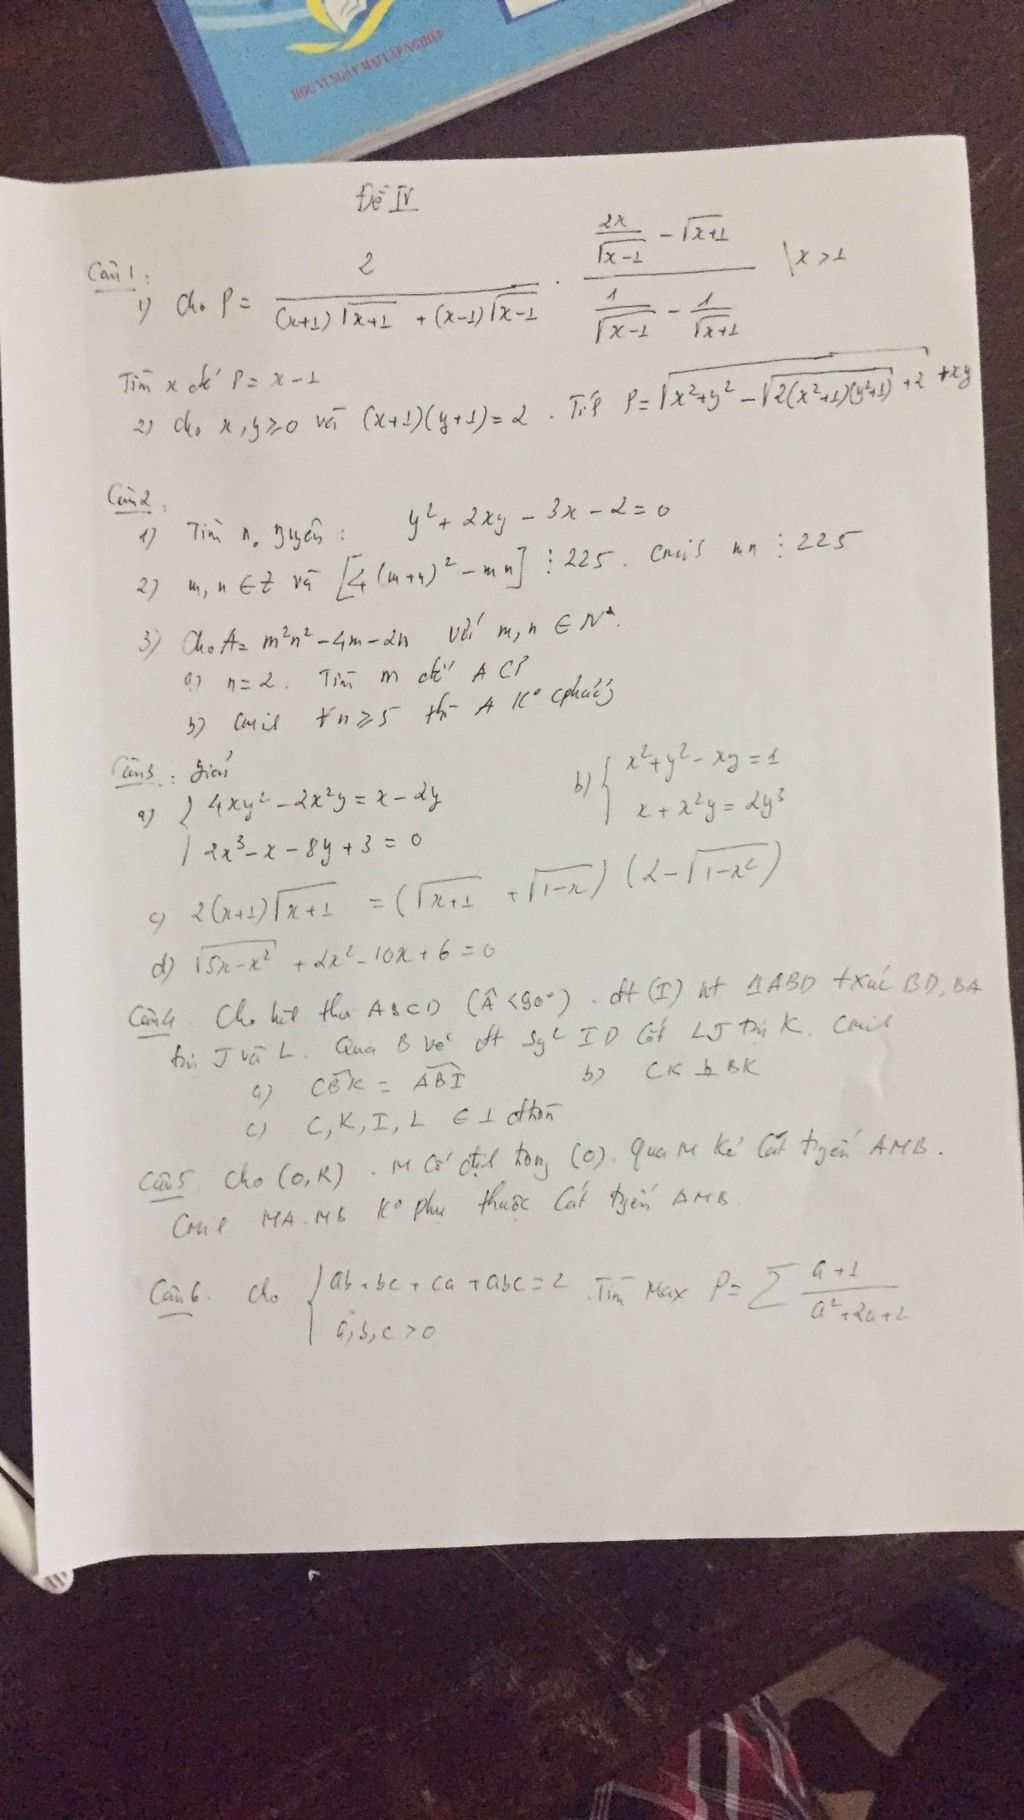 HỌC VÌ NGÀY MAI LẬP NGHIỆP
Đề IV
Câu 1:
1) Cho P = 2 / ((x+1)√(x+1) + (x-1)√(x-1)) . (2x/√(x-1) - √(x+1)) / (1/√(x-1) - 1/√(x+1)) | x > 1
Tìm x để P = x - 1
2) Cho x, y ≥ 0 và (x+1)(y+1) = 2. Tính P = √(x²+y² - √(2(x²+1)(y²+1)) + 2) + xy
Câu 2.
1) Tìm n. nguyên: y² + 2xy - 3x - 2 = 0
2) m, n ∈ Z và [4(m+n)² - mn] ⋮ 225. Cmil mn ⋮ 225
3) Cho A = m²n² - 4m - 2n với m, n ∈ N*.
a) n = 2. Tìm m để A CP
b) Cmil ∀n ≥ 5 thì A K° cphương
Câu 3: Giải
a) { 4xy² - 2x²y = x - 2y
2x³ - x - 8y + 3 = 0
b) { x² + y² - xy = 1
x + x²y = 2y³
c) 2(x+1)√(x+1) = (√(x+1) + √(1-x))(2 - √(1-x²))
d) √(5x-x²) + 2x² - 10x + 6 = 0
Câu 4. Cho hình thoi ABCD (Â < 90°). đt (I) nt ΔABD txúc BD, BA
tại J và L. Qua B vẽ đt sg² ID cắt LJ tại K. Cmil
a) CBK = ABI b) CK ⊥ BK
c) C, K, I, L ∈ 1 đtròn
Câu 5. Cho (O,R). M cố định trong (O). Qua M kẻ cát tuyến AMB.
Cmil MA.MB K° phụ thuộc cát tuyến AMB.
Câu 6. Cho { ab + bc + ca + abc = 2
a, b, c > 0
Tìm Max P = Σ (a+1)/(a²+2a+2)